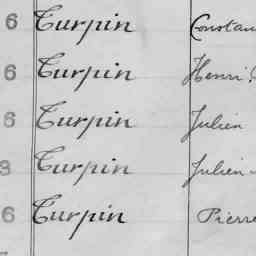 6 Turpin Constan
6 Turpin Henri
6 Turpin Julien
8 Turpin Julien
6 Turpin Pierre